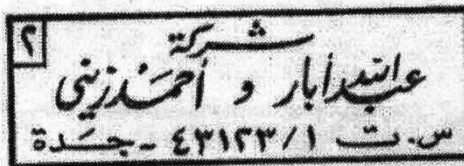 ٢
شركة
عبدالله أبار و أحمد زيني
س. ت ٤٣١٢٣/١ - جدة